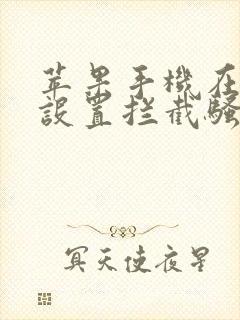 苹果手機在
設置拦截騷
冥天使夜星